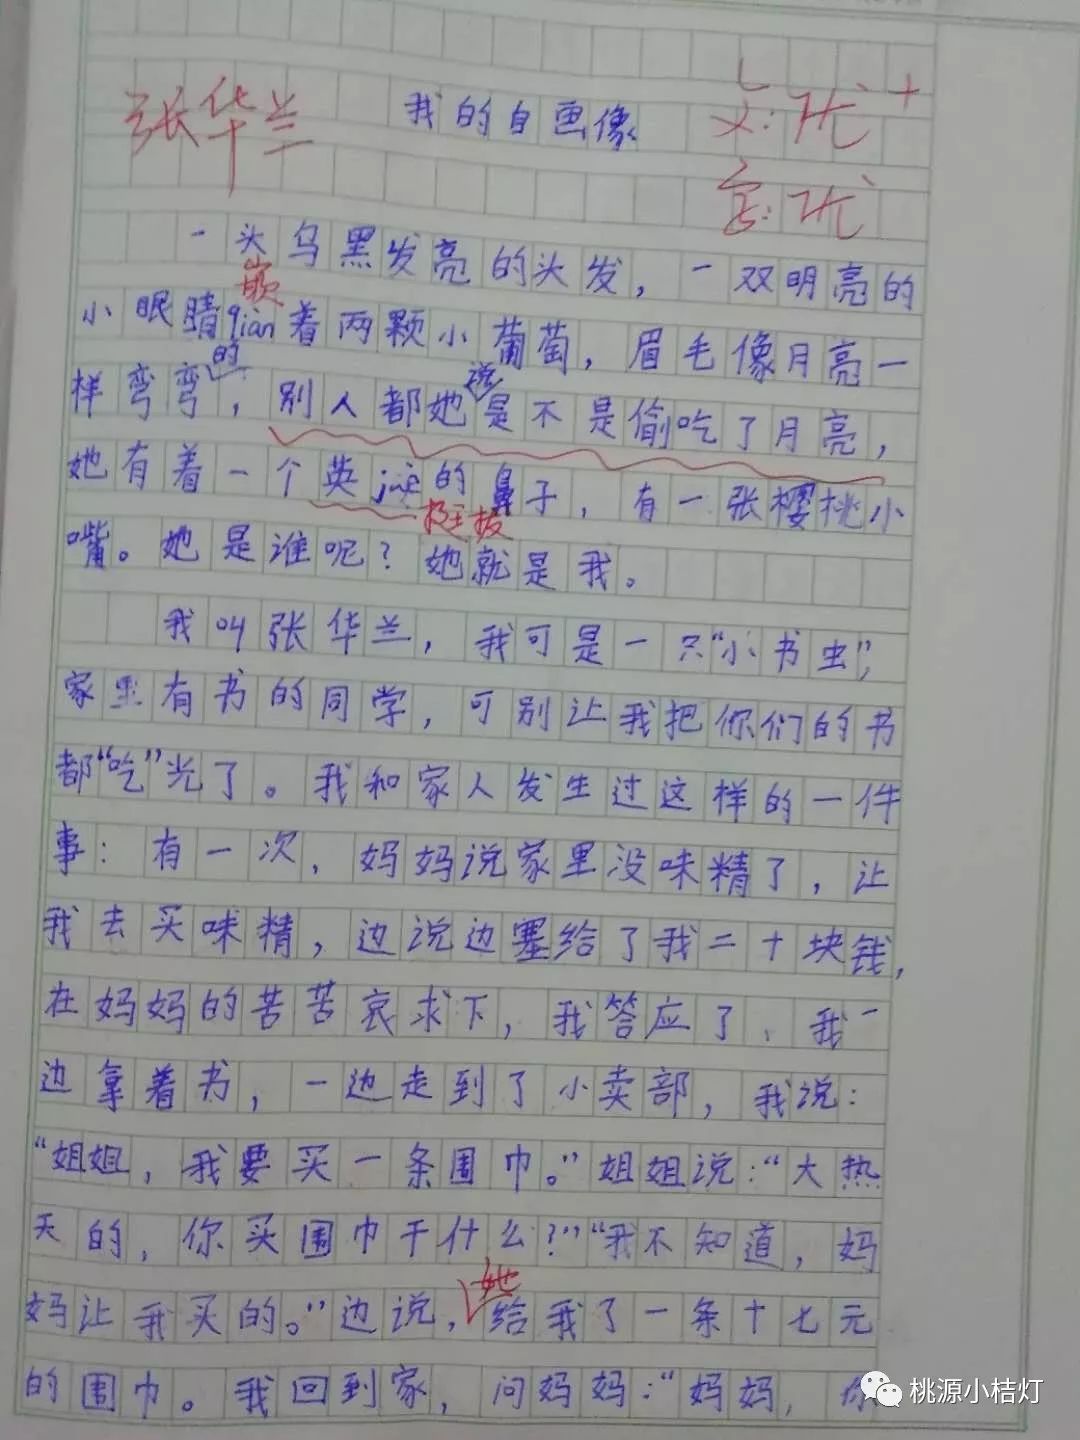 张华兰 我的自画像 文:优+
字:优
一头乌黑发亮的头发，一双明亮的
嵌
小眼睛qian着两颗小葡萄，眉毛像月亮一
样弯弯的，别人都她说是不是偷吃了月亮，
她有着一个英jun的鼻子，有一张樱桃小
挺拔
嘴。她是谁呢？她就是我。
我叫张华兰，我可是一只“小书虫”，
家里有书的同学，可别让我把你们的书
都“吃”光了。我和家人发生过这样的一件
事：有一次，妈妈说家里没味精了，让
我去买味精，边说边塞给了我二十块钱，
在妈妈的苦苦哀求下，我答应了、我一
边拿着书，一边走到了小卖部，我说：
“姐姐，我要买一条围巾。”姐姐说：“大热
天的，你买围巾干什么？”“我不知道，妈
妈让我买的。”边说，她给我了一条十七元
的围巾。我回到家，问妈妈：“妈妈，你
桃源小桔灯